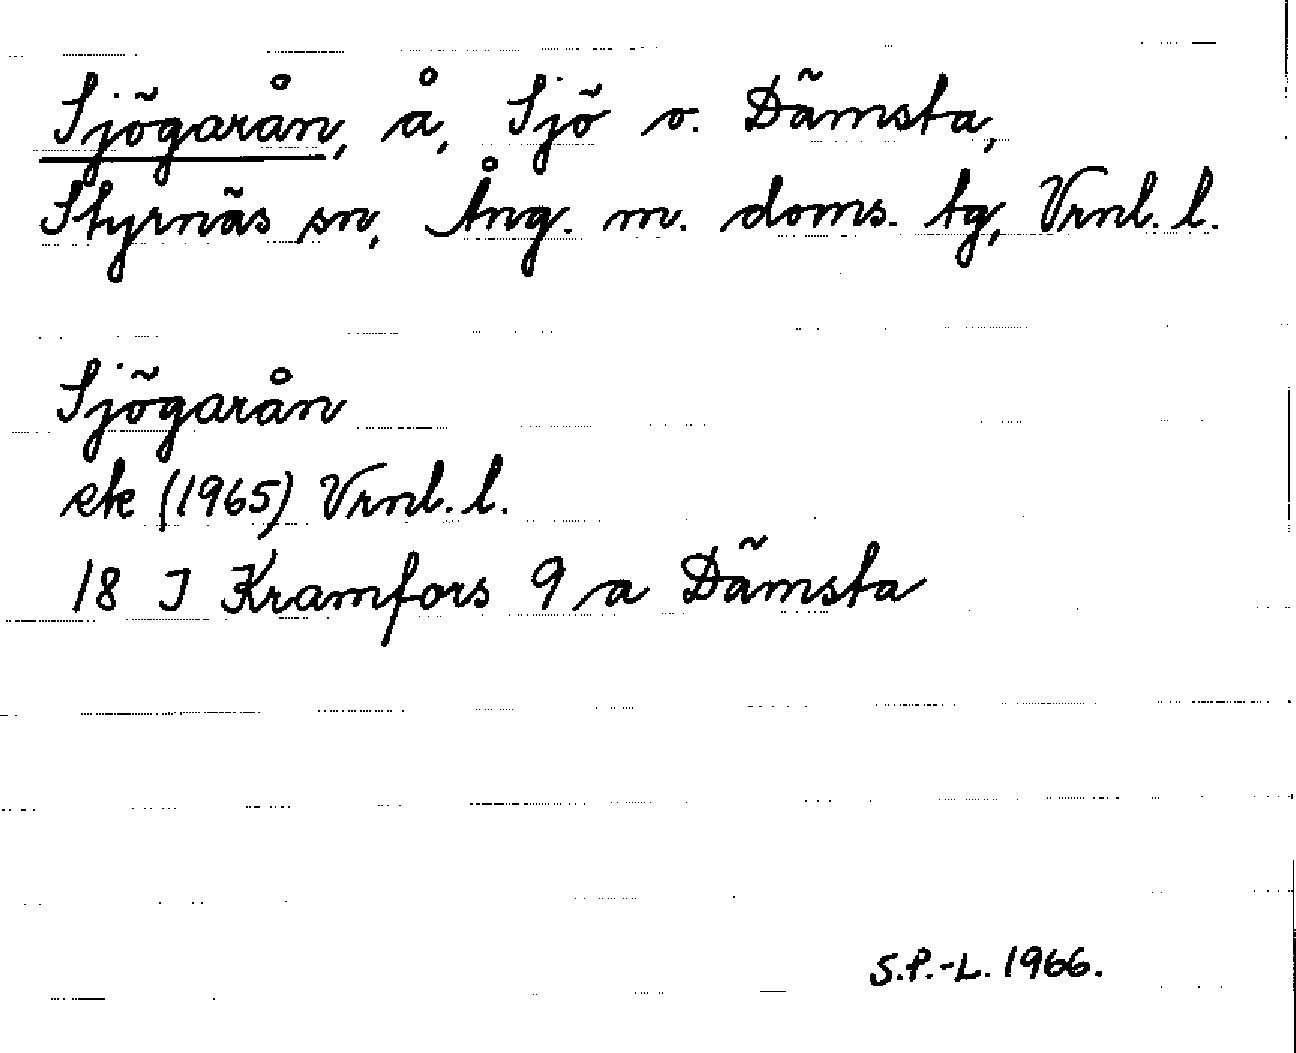 Sjögarån, å, Sjö o. Dämsta,
Styrnäs sn, Ång. m. doms. tg, Vrnl. l.
Sjögarån
ek (1965) Vrnl. l.
18 I Kramfors 9 a Dämsta
S.P.-L. 1966.